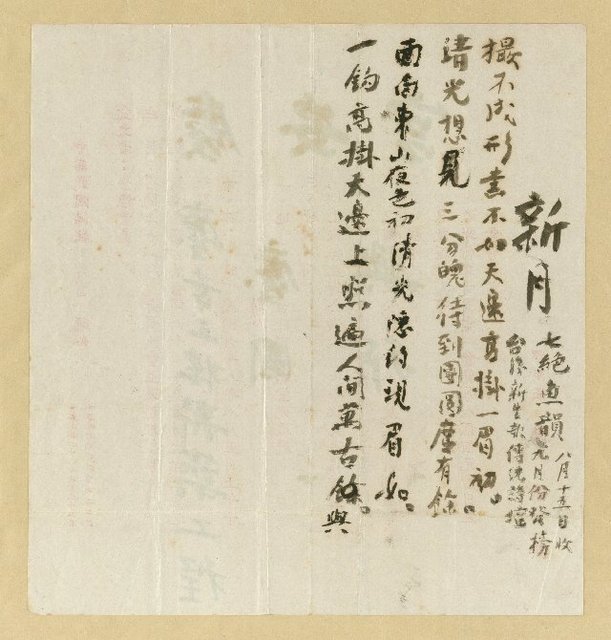 新月
七絕魚韻 八月十五日收
台灣新生報傳統詩壇 元月份發榜
撮不成形畫不如天邊高掛一眉初。
清光想見三分魄待到團圓應有餘。
面向東山夜色初清光隱約現眉如。
一鈎高掛天邊上照遍人间萬古餘。與